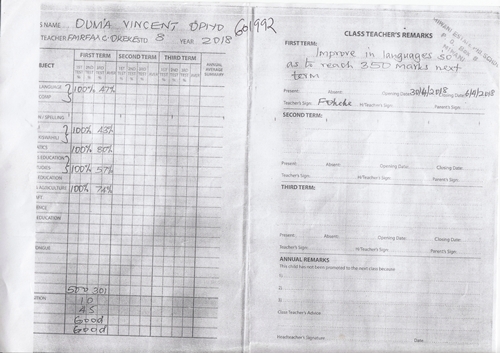 S NAME DUMA VINCENT OPIYO 601992
TEACHER FAIRFAX STD 8 YEAR 2018
BJECT
FIRST TERM SECOND TERM THIRD TERM
ANNUAL AVERAGE SUMMARY
LANGUAGE 100% 47%
COMP
N / SPELLING
100% 43%
KISWAHILI)
ATICS 100% 80%
S EDUCATION
TUDIES 100% 57%
S EDUCATION
AGRICULTURE 100% 74%
AFT
ENCE
EDUCATION
500 301
10
45
Good
Good
CLASS TEACHER'S REMARKS
FIRST TERM:
Improve in languages so
as to reach 350 marks next
term
Present: Absent: Opening Date: 30/4/2018
Teacher's Sign: H/Teacher's Sign: Parent's Sign:
SECOND TERM:
Present: Absent: Opening Date: Closing Date:
Teacher's Sign: H/Teacher's Sign: Parent's Sign:
THIRD TERM:
Present: Absent: Opening Date: Closing Date:
Teacher's Sign: H/Teacher's Sign: Parent's Sign:
ANNUAL REMARKS
This child has not been promoted to the next class because
1.
2.
3.
Class Teacher's Advice:
Headteacher's Signature: Date: